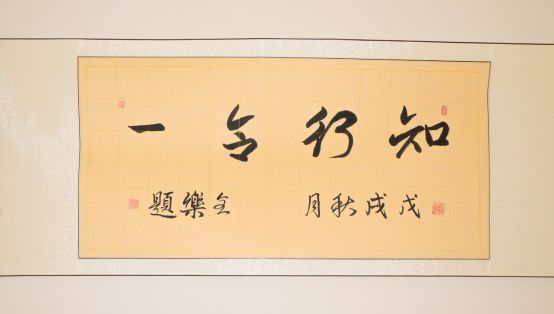 知行合一
戊戌秋月 全樂題